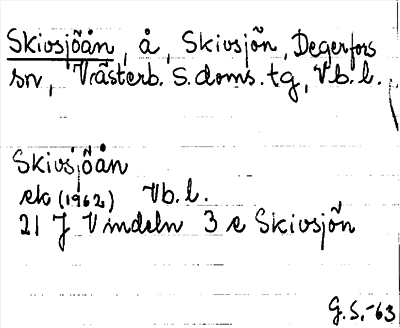 Skivsjöån, å, Skivsjön, Degerfors
sn, Västerb. s. doms. tg, Vb. l.
Skivsjöån
ek (1962) Vb. l.
21 J Vindeln 3 e Skivsjön
G. S. -63